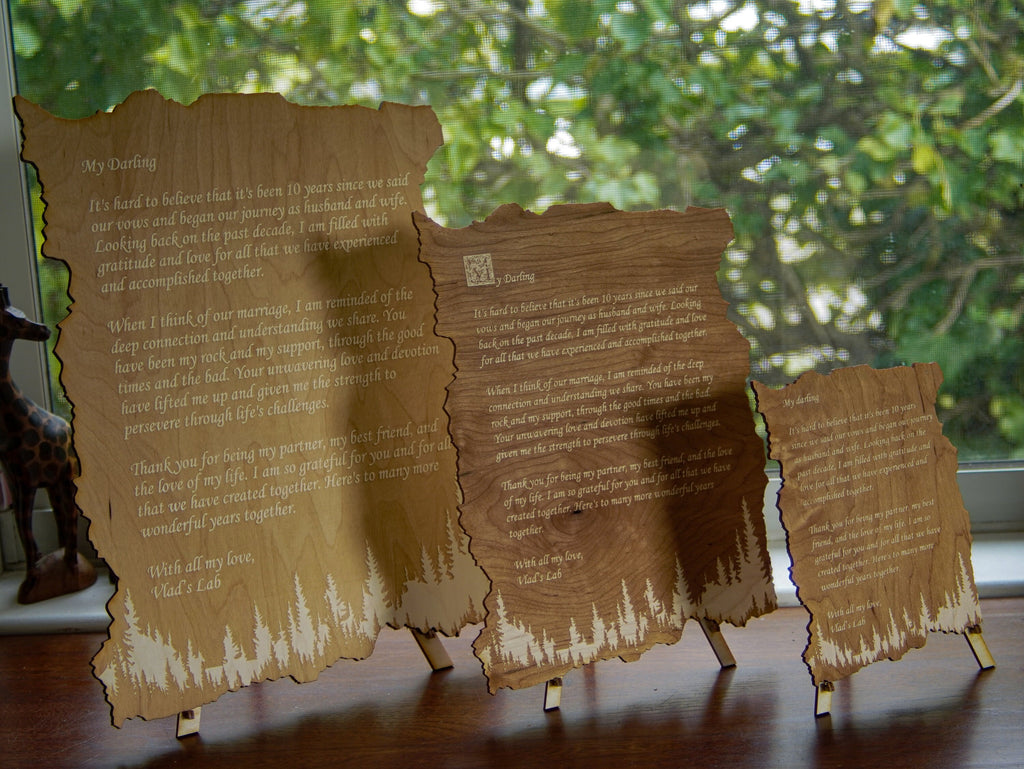 My Darling
It's hard to believe that it's been 10 years since we said
our vows and began our journey as husband and wife.
Looking back on the past decade, I am filled with
gratitude and love for all that we have experienced
and accomplished together.
When I think of our marriage, I am reminded of the
deep connection and understanding we share. You
have been my rock and my support, through the good
times and the bad. Your unwavering love and devotion
have lifted me up and given me the strength to
persevere through life's challenges.
Thank you for being my partner, my best friend, and
the love of my life. I am so grateful for you and for all
that we have created together. Here's to many more
wonderful years together.
With all my love,
Vlad's Lab
My Darling
It's hard to believe that it's been 10 years since we said our
vows and began our journey as husband and wife. Looking
back on the past decade, I am filled with gratitude and love
for all that we have experienced and accomplished together.
When I think of our marriage, I am reminded of the deep
connection and understanding we share. You have been my
rock and my support, through the good times and the bad.
Your unwavering love and devotion have lifted me up and
given me the strength to persevere through life's challenges.
Thank you for being my partner, my best friend, and the love
of my life. I am so grateful for you and for all that we have
created together. Here's to many more wonderful years
together.
With all my love,
Vlad's Lab
My darling
It's hard to believe that it's been 10 years
since we said our vows and began our journey as
husband and wife. Looking back on the
past decade, I am filled with gratitude and
love for all that we have experienced and
accomplished together.
Thank you for being my partner, my best
friend, and the love of my life. I am so
grateful for you and for all that we have
created together. Here's to many more
wonderful years together.
With all my love,
Vlad's Lab